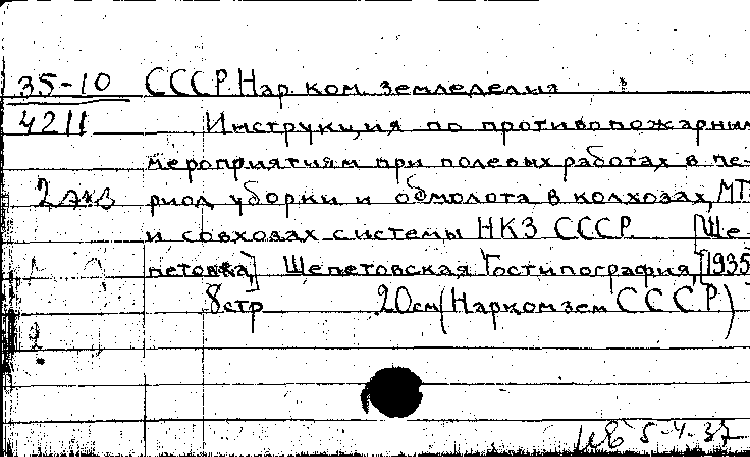 35-10 СССР. Нар. ком. земледелия
4211 Инструкция по противопожарным
мероприятиям при полевых работах в пе-
2 экз риод уборки и обмолота в колхозах, МТ
и совхозах системы НКЗ СССР. [Ше-
петовка] Шепетовская Гостипография, [1935
8 стр 20 см (Наркомзем СССР)
5-4-37